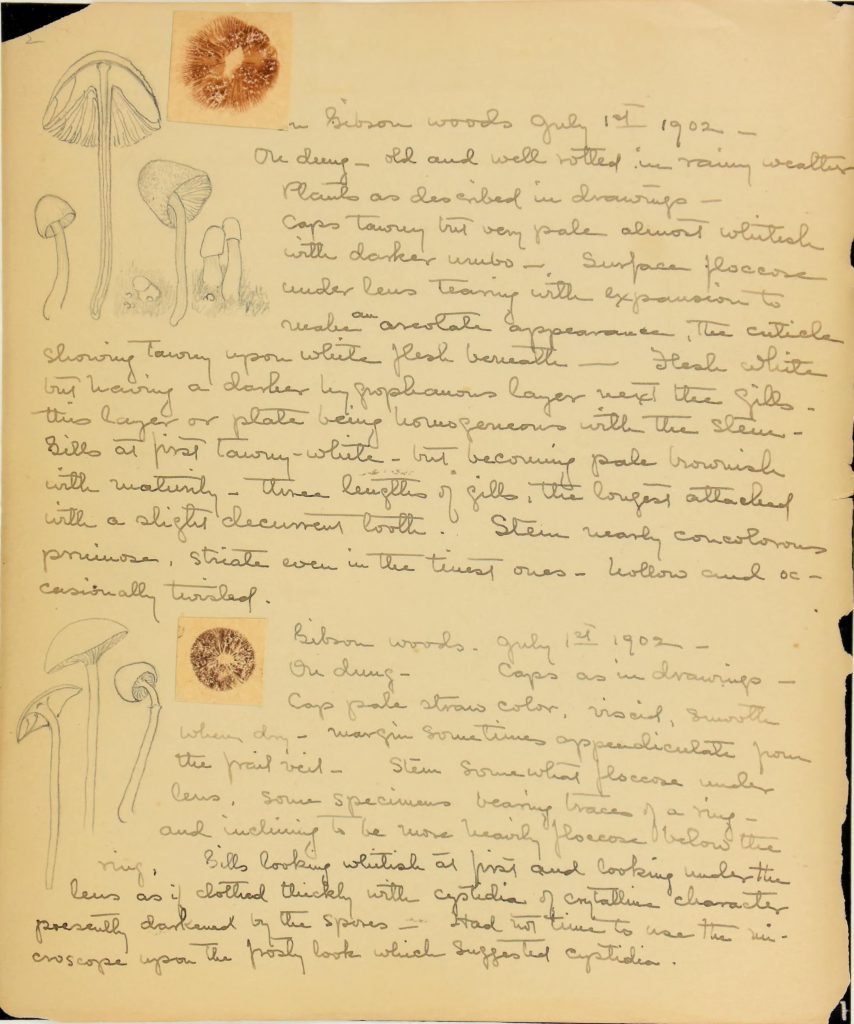 2
In Gibson woods July 1st 1902 —
On dung — old and well rotted in rainy weather
Plants as described in drawings —
Caps tawny but very pale almost whitish
with darker umbo — Surface floccose
under lens tearing with expansion to
make an areolate appearance, the cuticle
showing tawny upon white flesh beneath — Flesh white
but having a darker hygrophanous layer next the gills —
this layer or plate being homogeneous with the stem —
Gills at first tawny-white — but becoming pale brownish
with maturity — three lengths of gills, the longest attached
with a slight decurrent tooth. Stem nearly concolorous
pruinose, striate even in the tiniest ones — hollow and oc-
casionally twisted.
Gibson woods. July 1st 1902 —
On dung — Caps as in drawings —
Cap pale straw color, viscid, smooth
when dry — margin sometimes appendiculate from
the frail veil — Stem somewhat floccose under
lens, some specimens bearing traces of a ring —
and inclining to be more heavily floccose below the
ring. Gills looking whitish at first and looking under the
lens as if clothed thickly with cystidia of crytalline character
presently darkened by the spores — Had not time to use the mi-
croscope upon the frosty look which suggested cystidia.